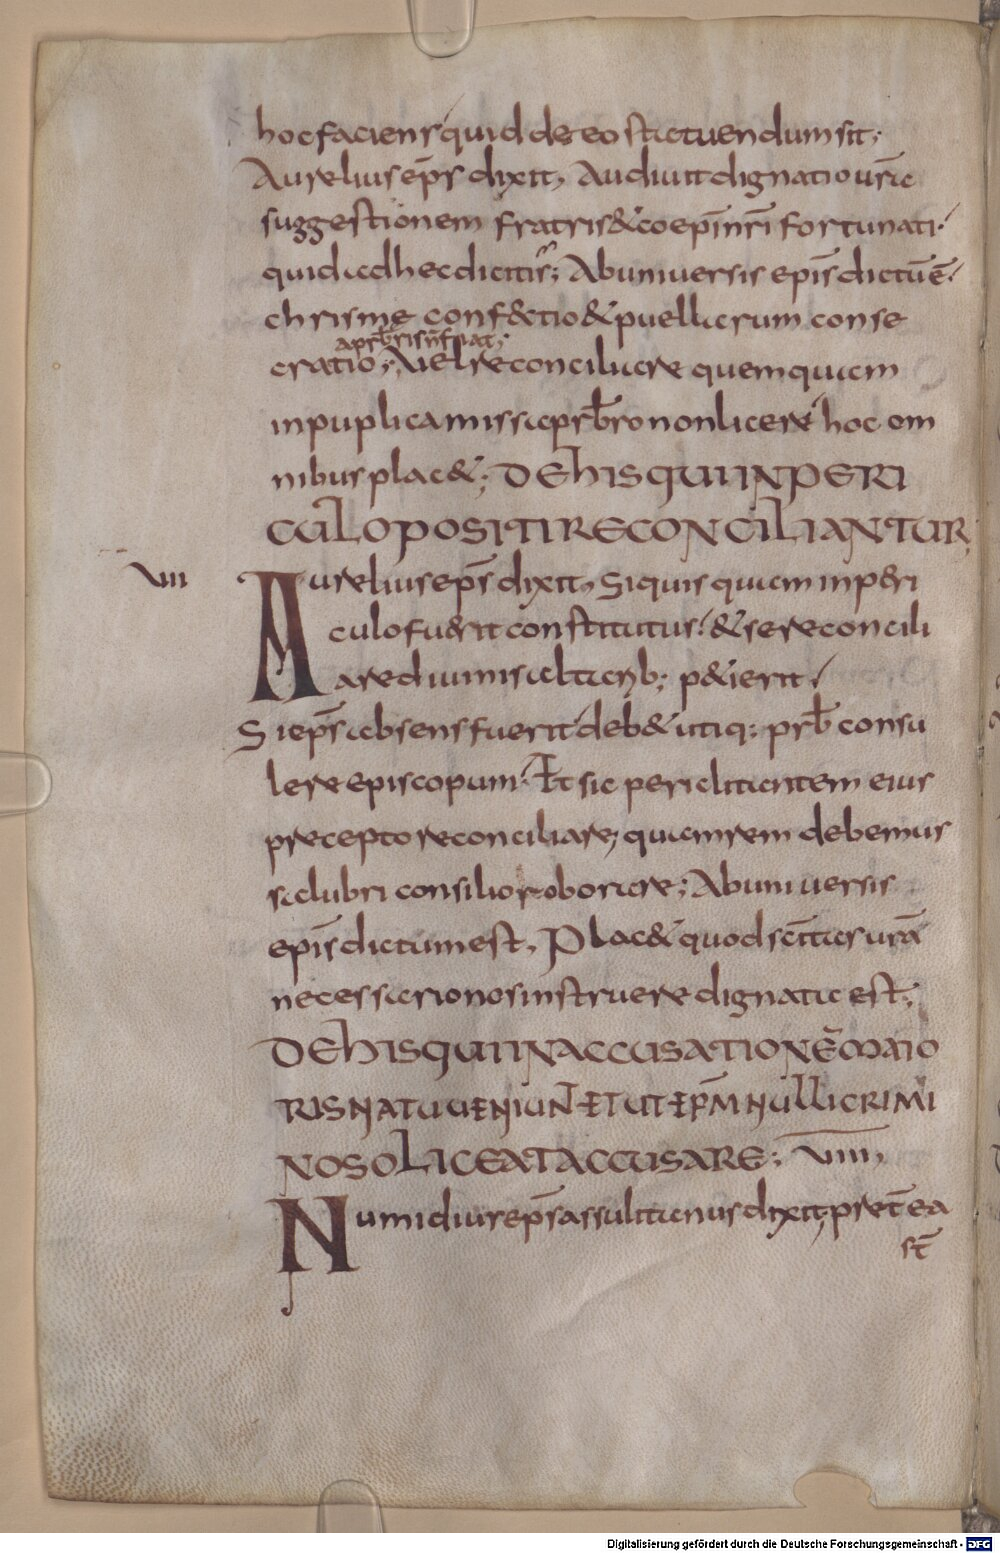 hoc faciens quid de eo statuendum sit;
Aurelius ep̄s dixit, Audiuit dignatio ur̄a
suggestionem fratris & coep̄i nr̄i fortunati.
quid ad hec dicitis; Ab uniuersis epīs dictū ē.
chrisme conf&tio & puellarum conse
a prb̄ris n̄ fiat;
cratio; Vel reconciliare quemquam
in puplica missa prb̄ro non licere hoc om
nibus plac&; DE HIS QUI IN PERI
CULO POSITI RECONCILIANTUR;
VIII
Aurelius ep̄s dixit, Si quis quam in p&ri
culo fu&rit constitutus. & se reconcili
are diuinis altarib; p&ierit.
Si ep̄s absens fuerit deb& utiq; prb̄ consu
lere episcopum. Et sic periclitantem eius
precepto reconciliare; quam rem debemus
salubri consilio roborare; Ab uniuersis
epīs dictum est, Plac& quod sc̄itas ur̄a
necessario nos instruere dignata est;
DE HIS QUI IN ACCUSATIONĒ MAIO
RIS NATU UENIUNT ET UT EP̄M NULLI CRIMI
NOSO LICEAT ACCUSARE; VIIII,
Numidius ep̄s assulitanus dixit, pret̄ ea
st̄
Digitalisierung gefördert durch die Deutsche Forschungsgemeinschaft - DFG